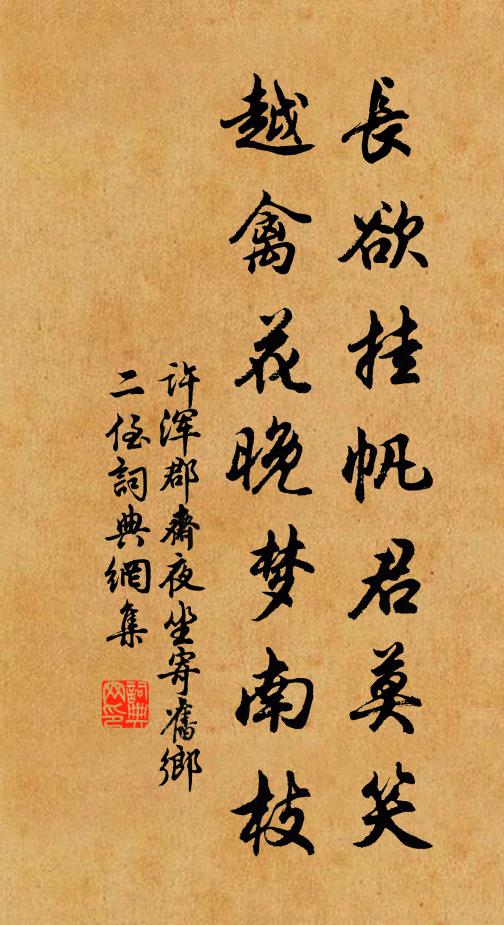 長欲挂帆君莫笑
越禽花晚梦南枝
许浑郡齋夜坐寄舊鄉
二侄詞典網集
詞典
网印